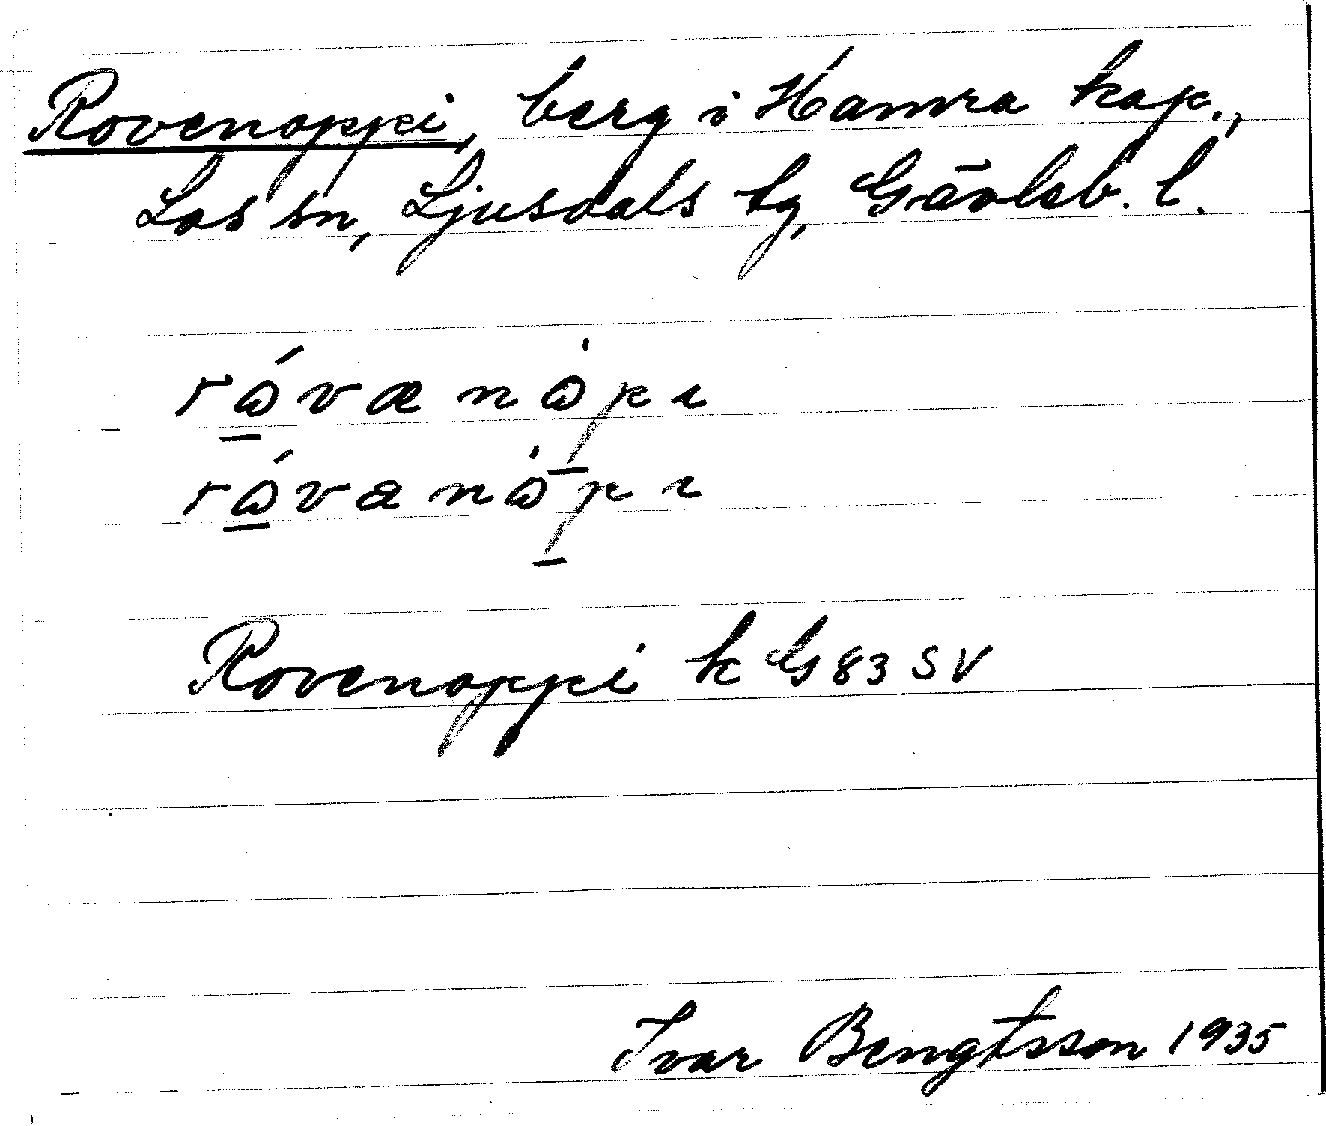 Rovenoppi, berg i Hamra kap.,
Los sn, Ljusdals tg, Gävleb. l.
rώ̲vænω̇p̲ı
rώ̲vanω̇p̲ı
Rovenoppi k G83 SV
Ivar Bengtsson 1935